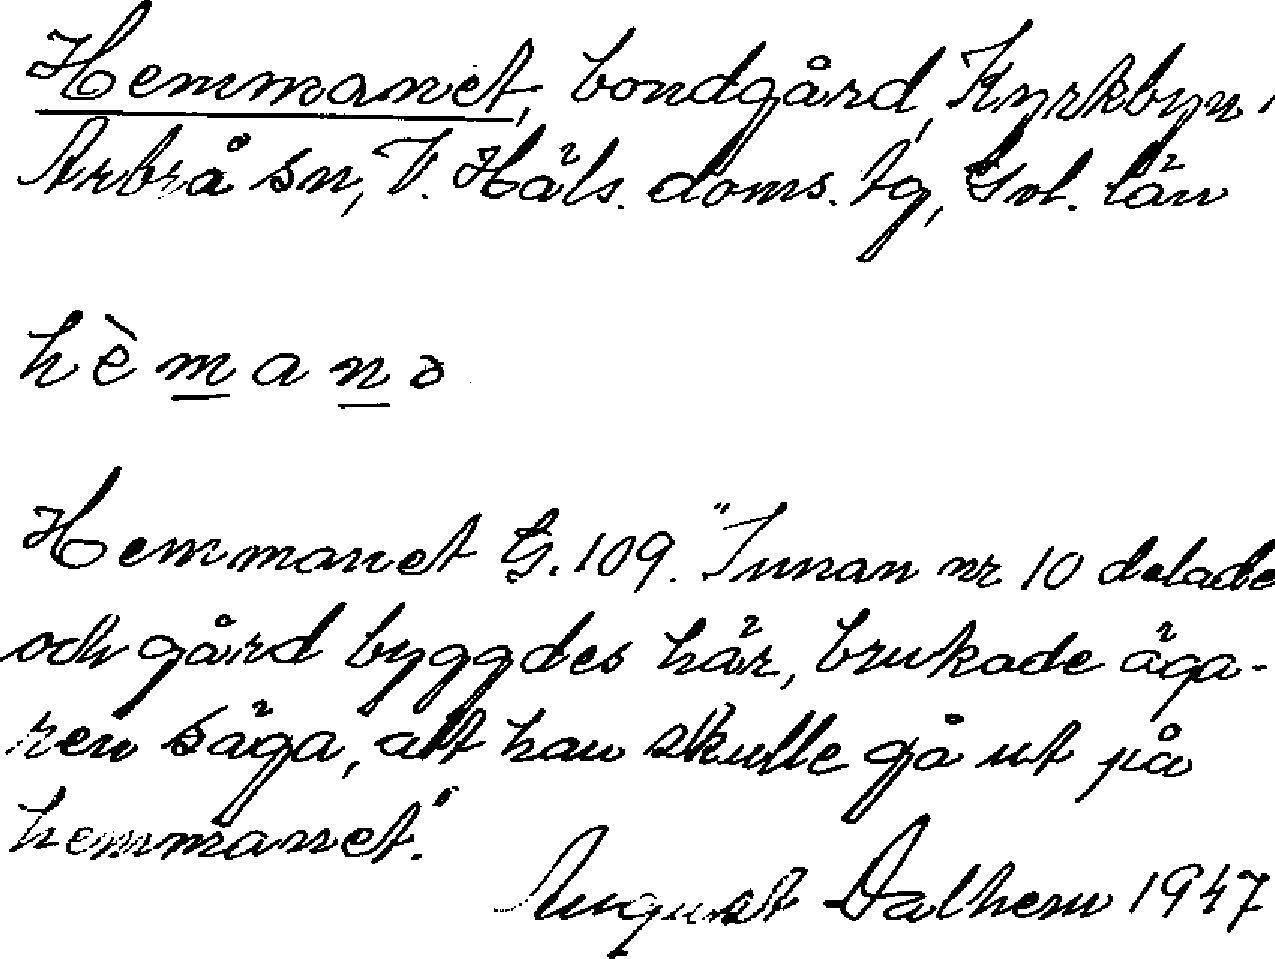 Hemmanet, bondgård, Kyrkbyn,
Arbrå sn, V. Häls. doms. tg, Gvl. län
hèmanə
Hemmanet G. 109. "Innan nr 10 delade
och gård byggdes här, brukade äga-
ren säga, att han skulle gå ut på
hemmanet."
August Dalhem 1947